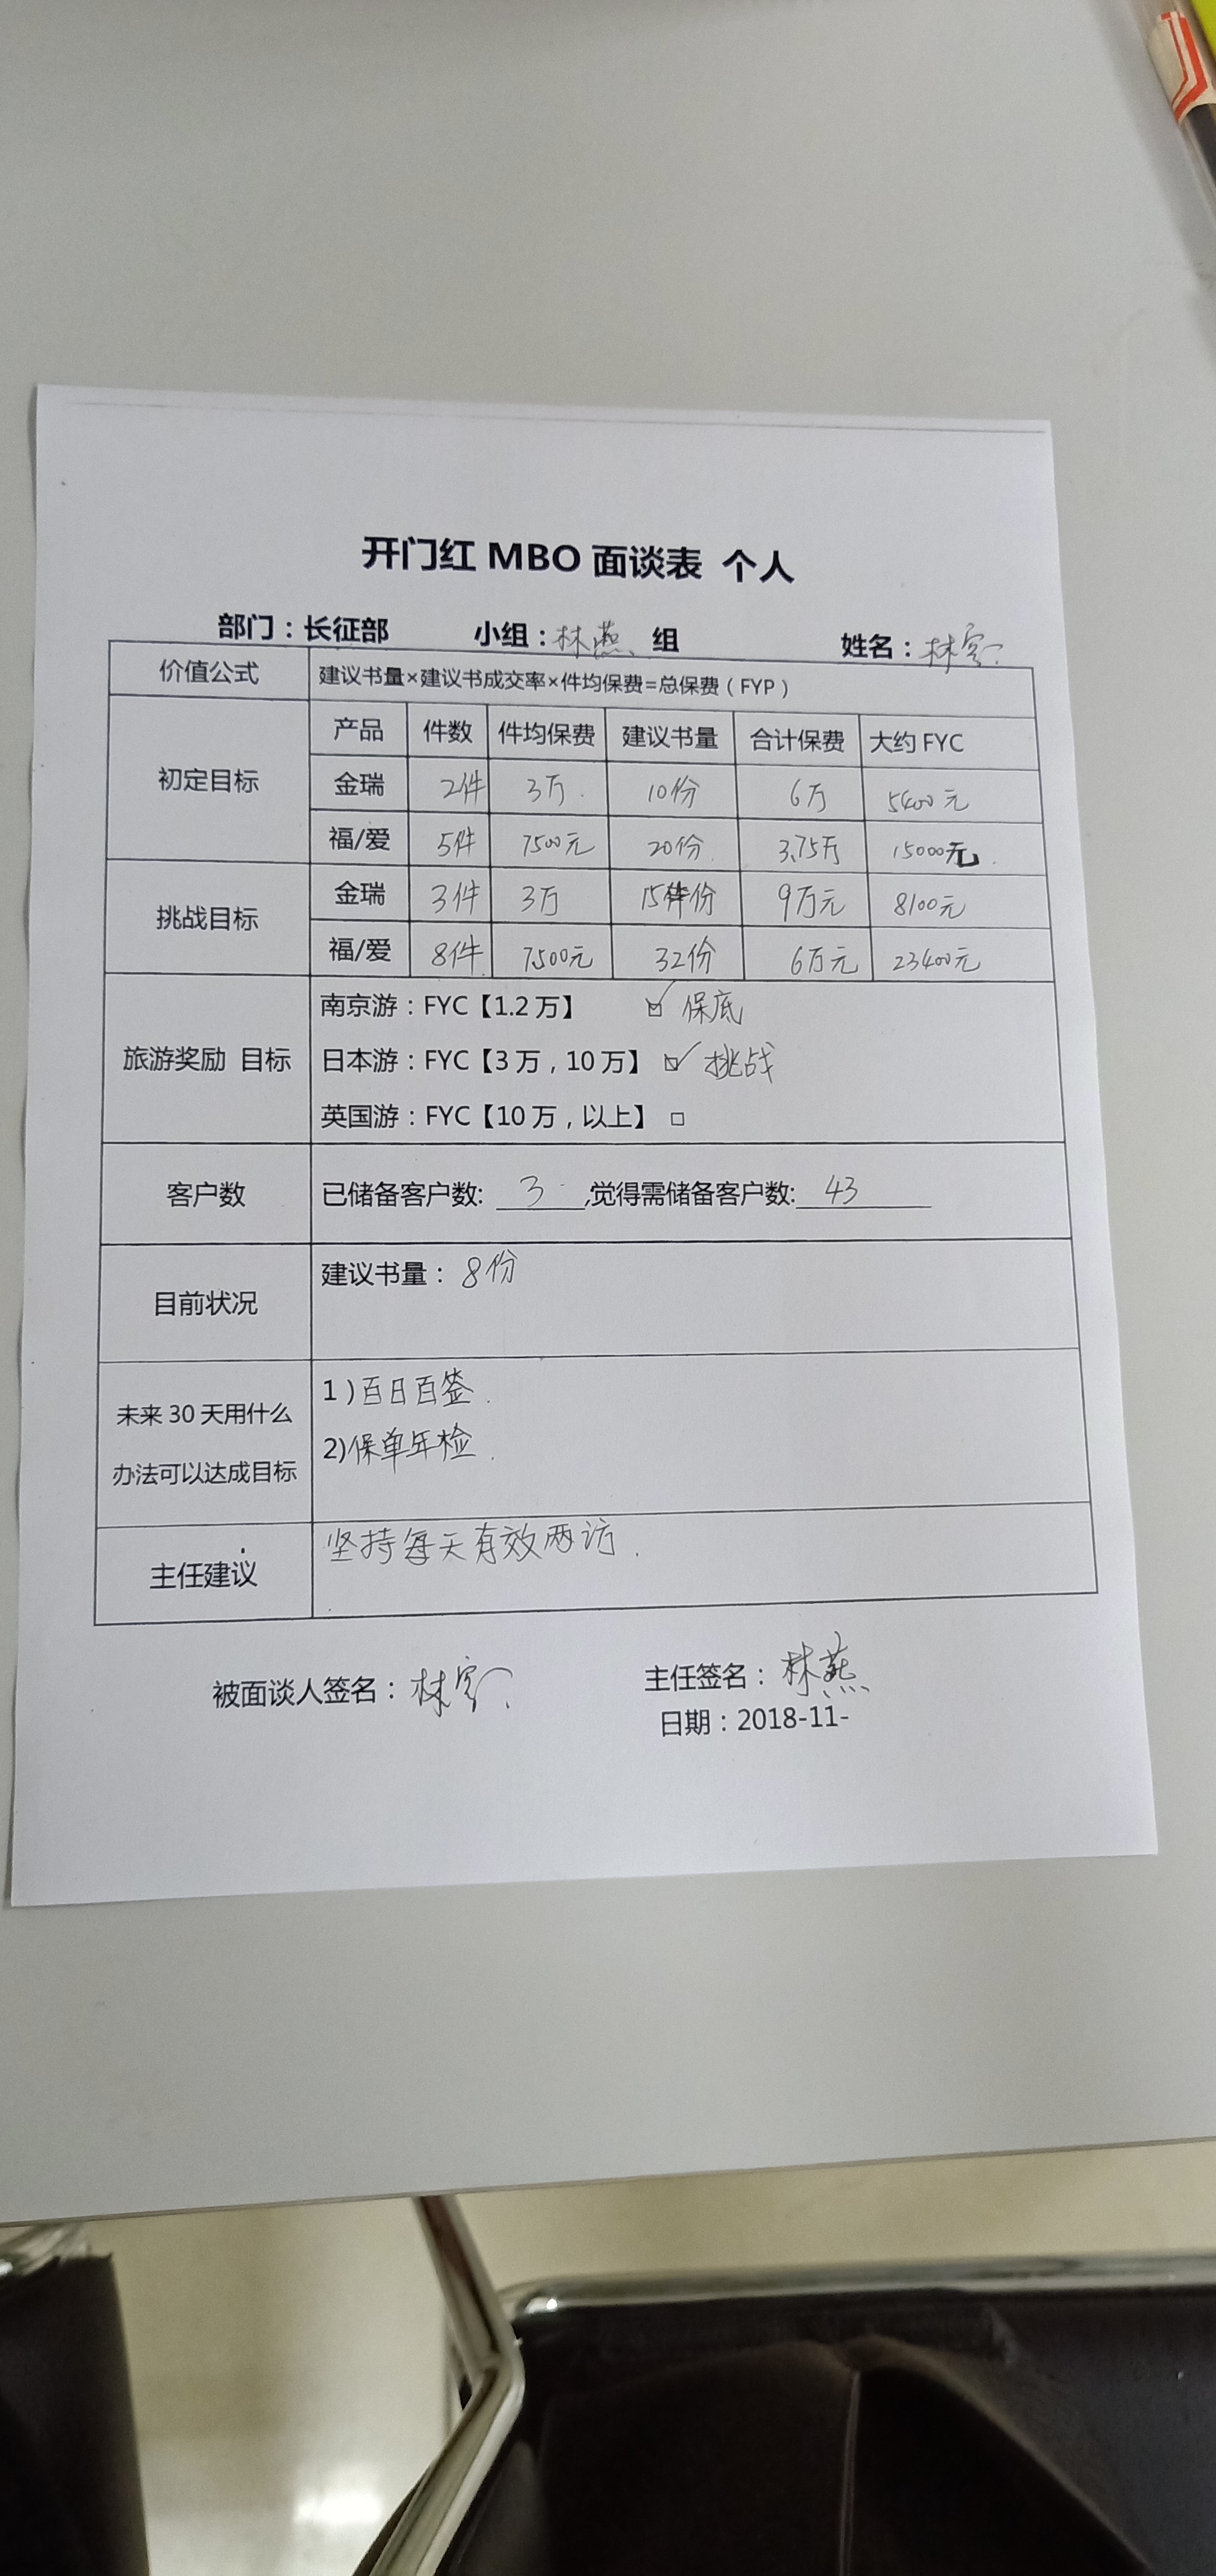 开门红 MBO 面谈表 个人
部门：长征部 小组：林燕 组 姓名：林
价值公式 建议书量×建议书成交率×件均保费=总保费（FYP）
初定目标 产品 件数 件均保费 建议书量 合计保费 大约 FYC
金瑞 2件 3万 10份 6万 5400元
福/爱 5件 7500元 20份 3.75万 15000元
挑战目标 金瑞 3件 3万 15份 9万元 8100元
福/爱 8件 7500元 32份 6万元 23400元
旅游奖励 目标 南京游：FYC【1.2 万】 ☑ 保底
日本游：FYC【3 万，10 万】 ☑ 挑战
英国游：FYC【10 万，以上】 □
客户数 已储备客户数: 3 ,觉得需储备客户数: 43
目前状况 建议书量：8份
未来 30 天用什么办法可以达成目标 1）百日百签.
2)保单年检.
主任建议 坚持每天有效两访.
被面谈人签名：林 主任签名：林燕
日期：2018-11-